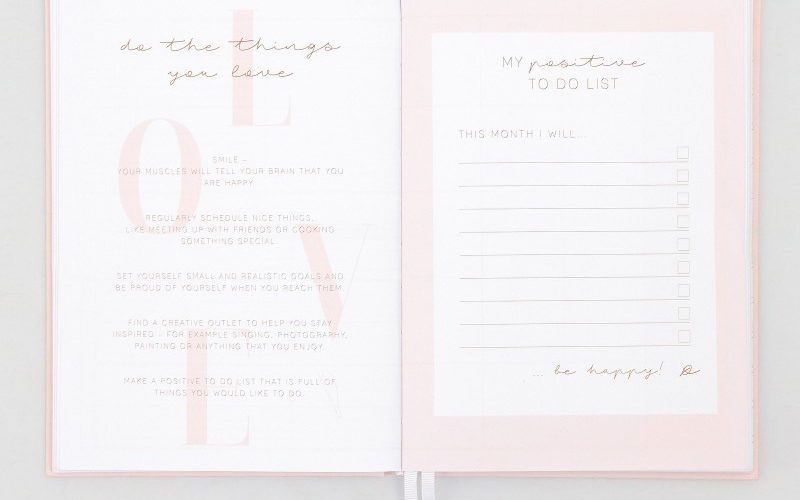 do the things
you love
L
O
V
L
SMILE –
YOUR MUSCLES WILL TELL YOUR BRAIN THAT YOU
ARE HAPPY
REGULARLY SCHEDULE NICE THINGS,
LIKE MEETING UP WITH FRIENDS OR COOKING
SOMETHING SPECIAL.
SET YOURSELF SMALL AND REALISTIC GOALS AND
BE PROUD OF YOURSELF WHEN YOU REACH THEM.
FIND A CREATIVE OUTLET TO HELP YOU STAY
INSPIRED – FOR EXAMPLE SINGING, PHOTOGRAPHY,
PAINTING OR ANYTHING THAT YOU ENJOY.
MAKE A POSITIVE TO DO LIST THAT IS FULL OF
THINGS YOU WOULD LIKE TO DO.
MY positive
TO DO LIST
THIS MONTH I WILL...
... be happy!